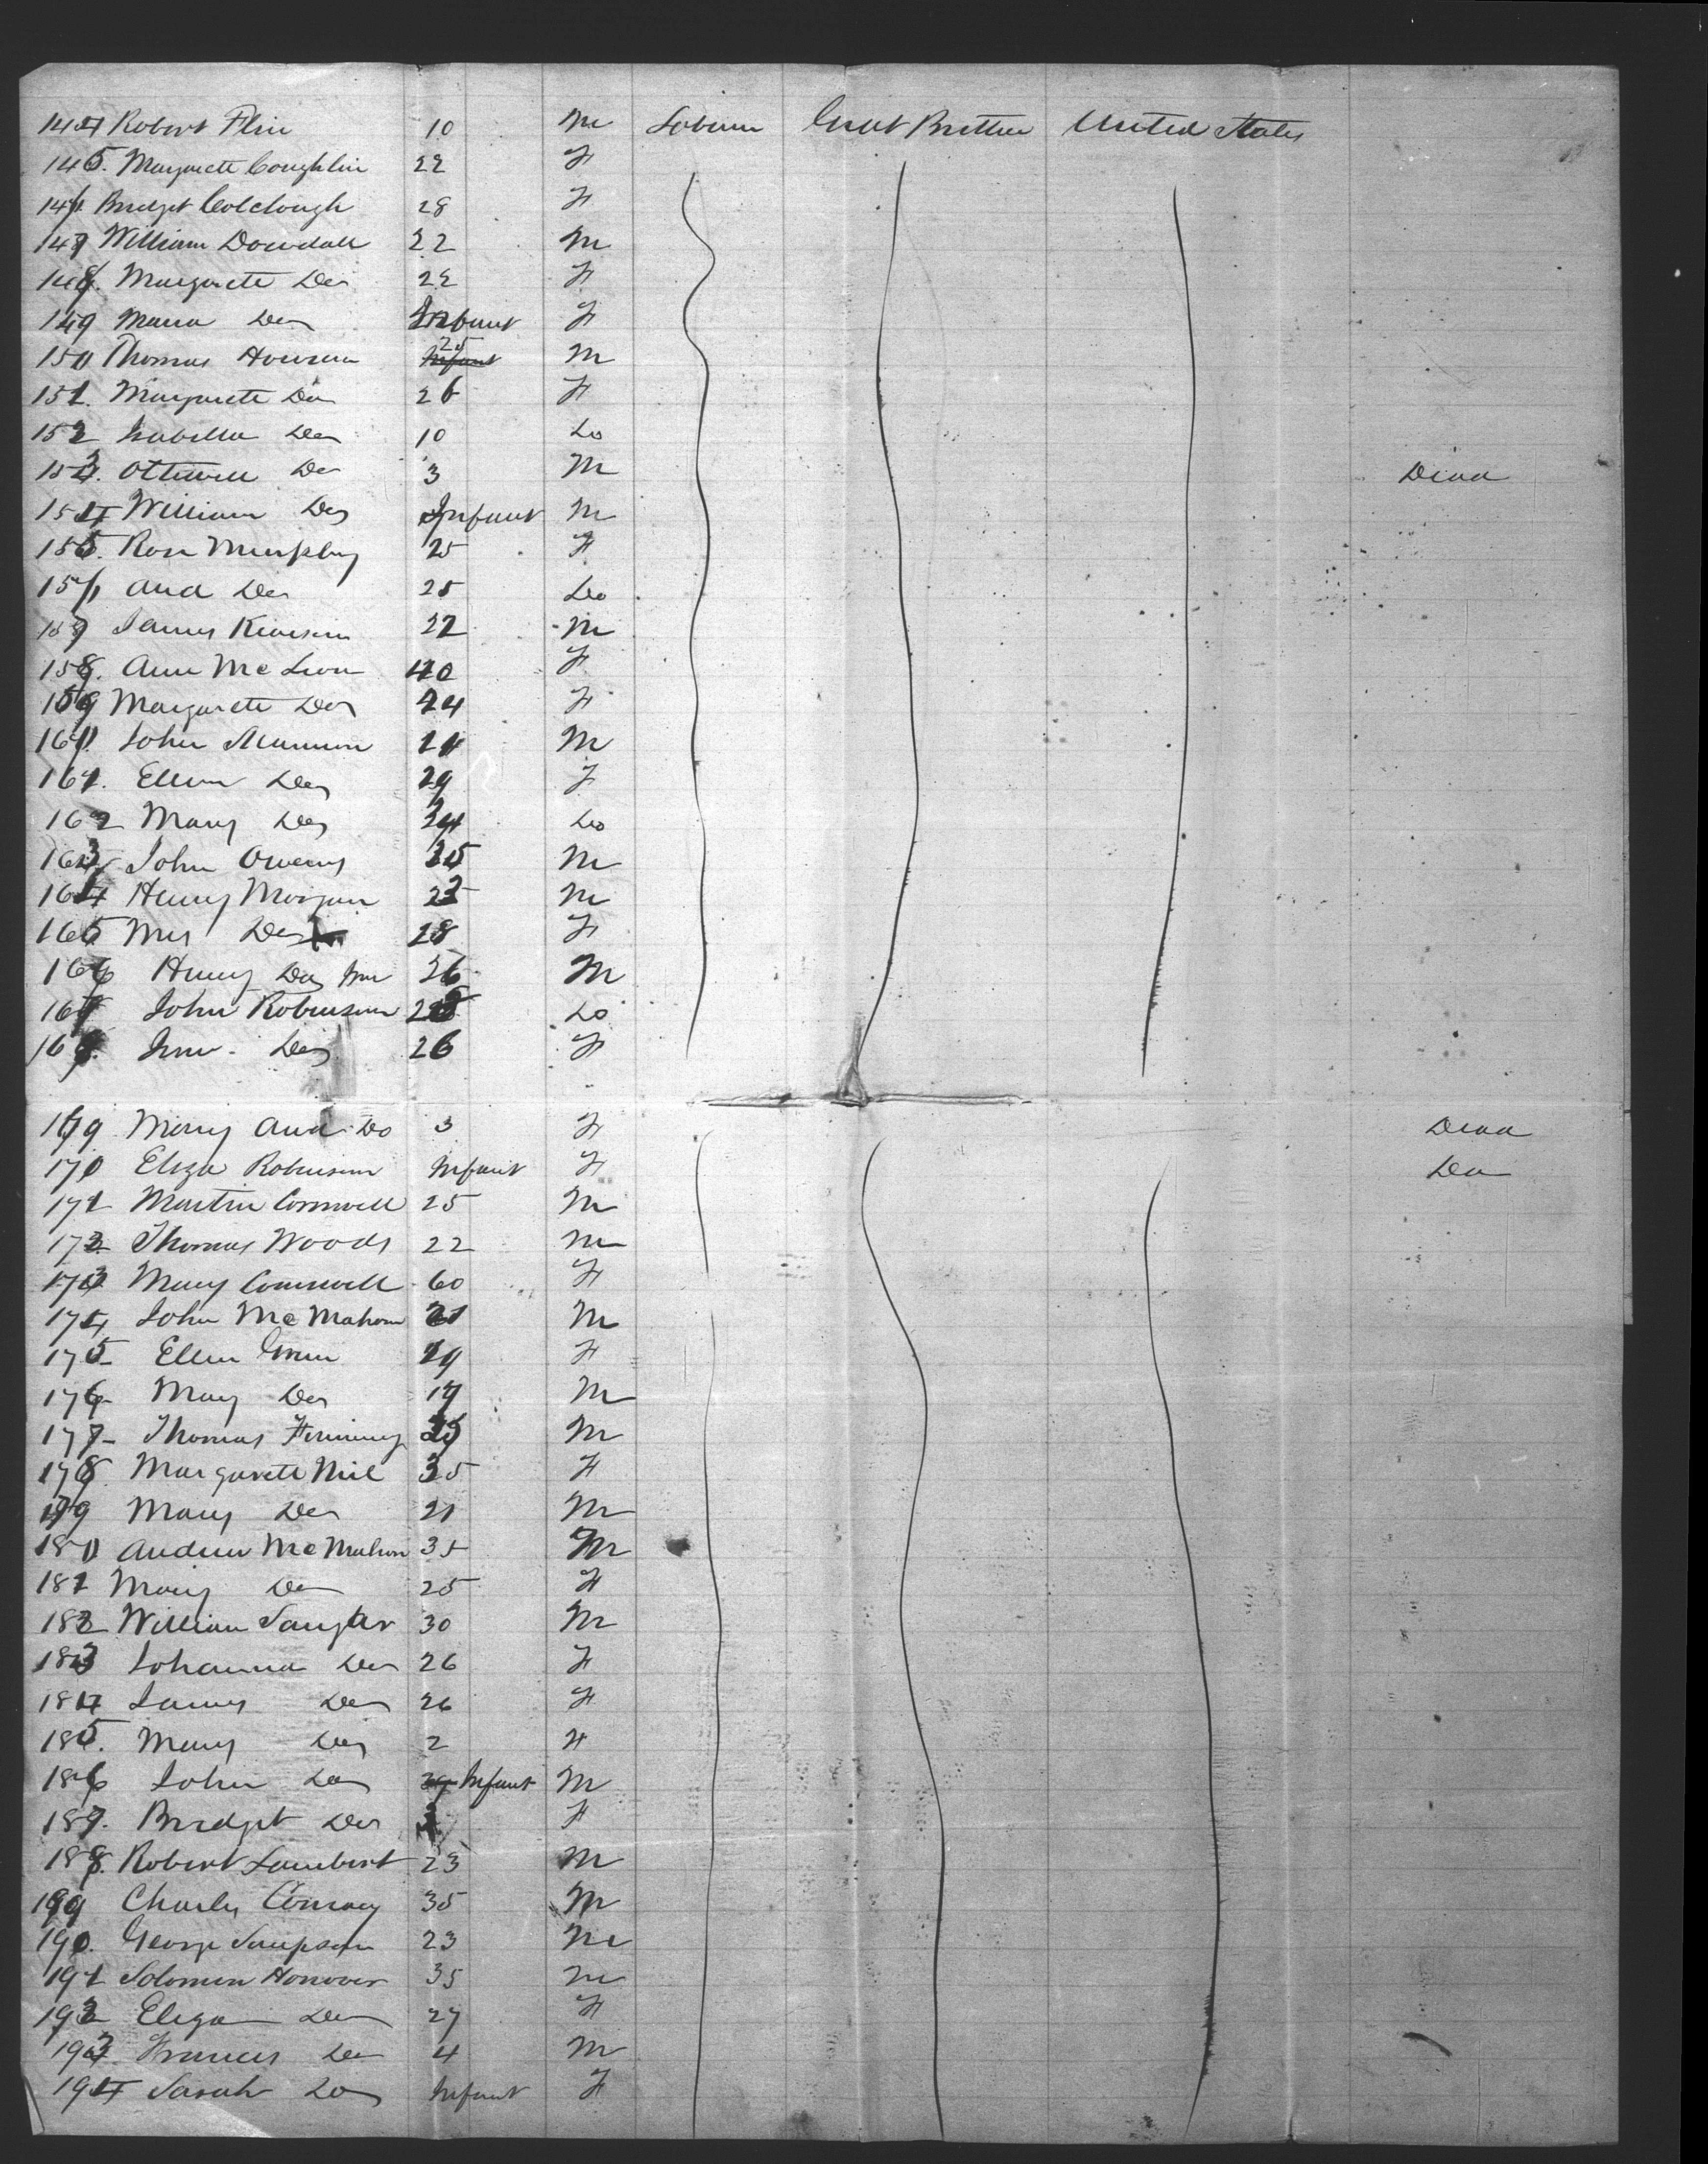 144 Robert Flin 10 M Laborer Great Brittan United States
145. Margarett Coughlin 22 F
146. Bridget Colclough 28 F
147 William Dowdall 22 M
148. Margarete Do 22 F
149 Maria Do Infant F
150 Thomas 25 M
151. Margarete Do 26 F
152 Isabella Do 10 Do
153. Do 3 M Dead
154 William Do Infant M
155. Rose Murphy 25 F
156 And Do 25 Do
157 James 22 M
158. Ann Mc 40 F
159 Margarete Do 24 F
160. John M
161. Ellen Do 29 F
162 Mary Do 24 Do
163 John Owens 35 M
164 Henry Morgan 23 M
165 Mrs Do 28 F
166 Henry Do Jnr 26 M
167 John Robinson 28 Do
168. Do 26 F
169 Mary And Do 3 F Dead
170 Eliza Robinson Infant F Do
171 Martin Cornwell 25 M
172 Thomas Woods 22 M
173 Mary Cornwell 60 F
174 John Mc Mahon 21 M
175 Ellen Green 29 F
176 Mary Do 17 M
177 Thomas 25 M
178 Margarett Neil 35 F
179 Mary Do 21 M
180 Andrew Mc Mahon 35 M
181 Mary Do 25 F
182 William 30 M
183 Johanna Do 26 F
184 James Do 26 F
185. Mary Do 2 F
186 John Do Infant M
187. Bridget Do F
188. Robert Lambert 23 M
189 Charles Conway 35 M
190. George Simpson 23 M
191 Solomon Honover 35 M
192 Eliza Do 27 F
193 Frances Do 4 M
194 Sarah Do Infant F